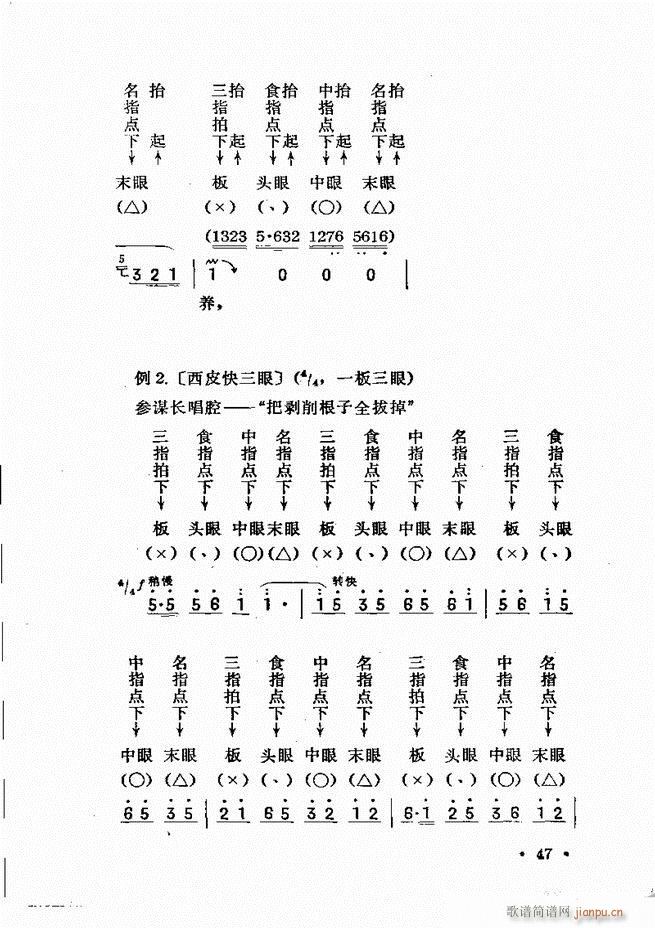 名指点下↓ 抬起↑ 三指拍下↓ 抬起↑ 食指点下↓ 抬起↑ 中指点下↓ 抬起↑ 名指点下↓ 抬起↑
末眼 板 头眼 中眼 末眼
(△) (×) (、) (○) (△)
(1323 5·632 1276 5616)
5 3 2 1 | 1 0 0 0 |
养,
例2.〔西皮快三眼〕(4/4, 一板三眼)
参谋长唱腔——“把剥削根子全拔掉”
三指拍下↓ 食指点下↓ 中指点下↓ 名指点下↓ 三指拍下↓ 食指点下↓ 中指点下↓ 名指点下↓ 三指拍下↓ 食指点下↓
板 头眼 中眼 末眼 板 头眼 中眼 末眼 板 头眼
(×) (、) (○) (△) (×) (、) (○) (△) (×) (、)
4/4 f 稍慢 转快
5·5 5 6 1 1· | 1 5 3 5 6 5 6 1 | 5 6 1 5
中指点下↓ 名指点下↓ 三指拍下↓ 食指点下↓ 中指点下↓ 名指点下↓ 三指拍下↓ 食指点下↓ 中指点下↓ 名指点下↓
中眼 末眼 板 头眼 中眼 末眼 板 头眼 中眼 末眼
(○) (△) (×) (、) (○) (△) (×) (、) (○) (△)
6 5 3 5 | 2 1 6 5 3 2 1 2 | 6·1 2 5 3 6 1 2 |
· 47 ·
歌谱简谱网 jianpu.cn